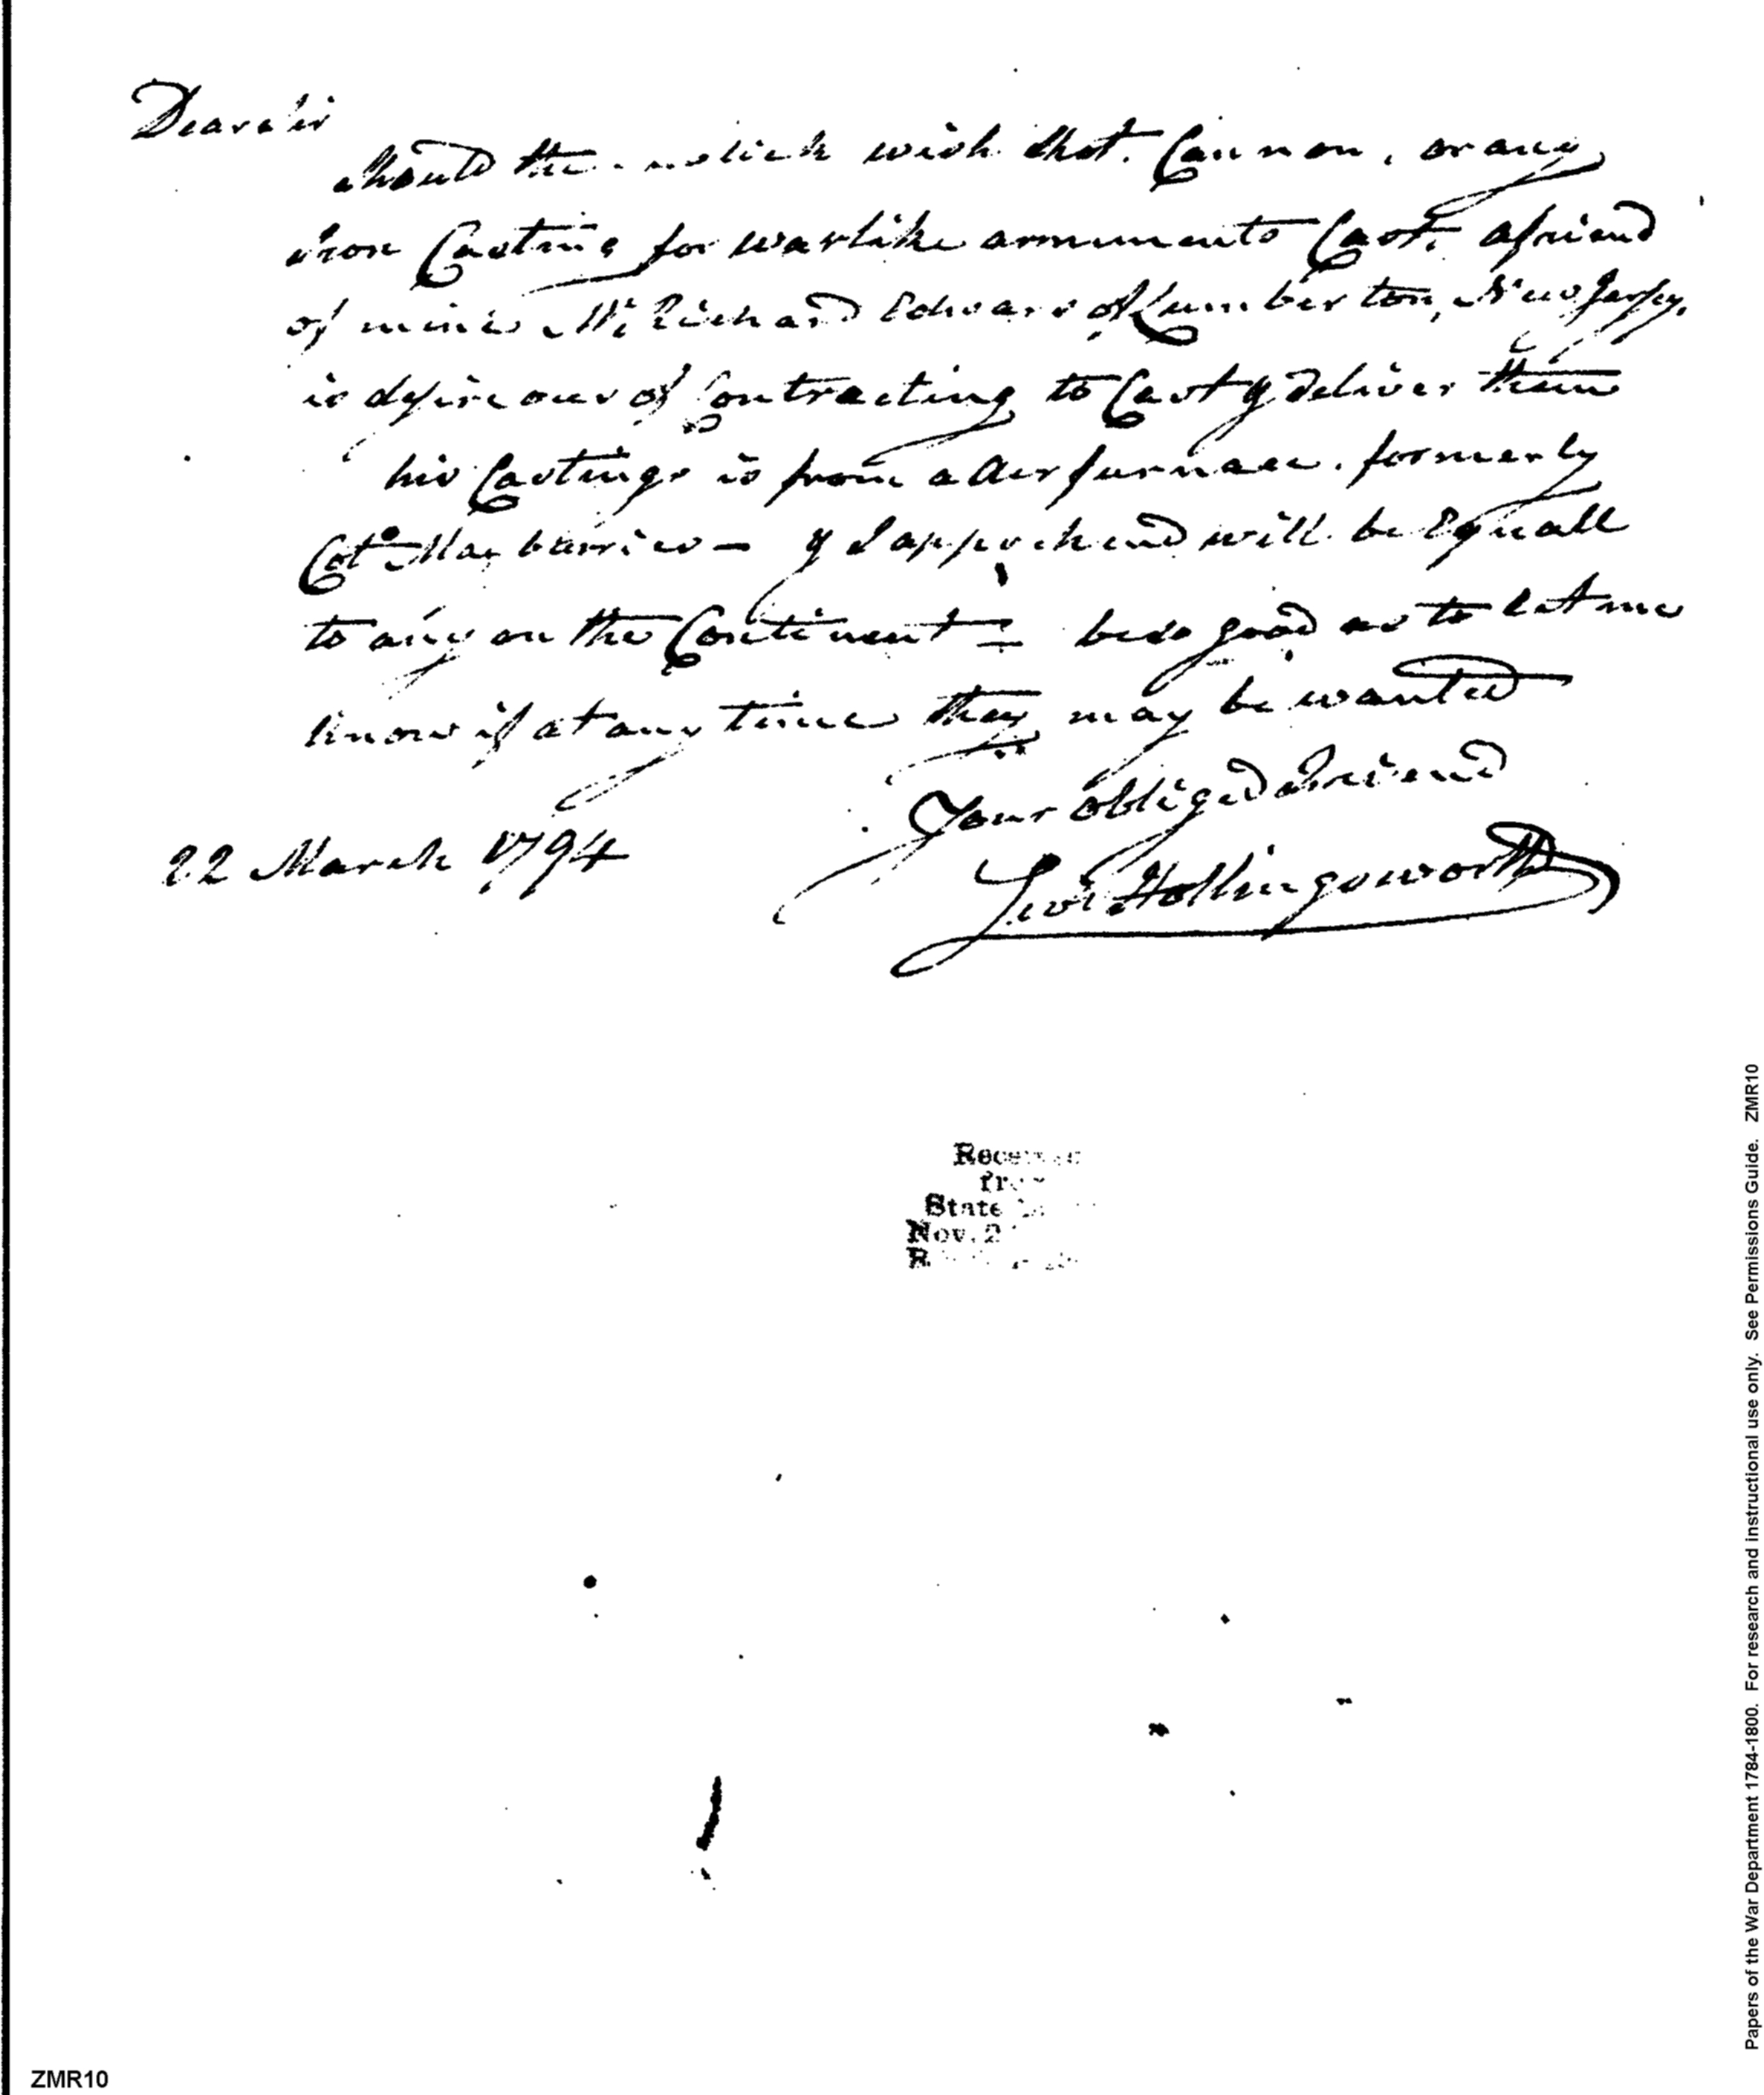 Dear Sir
Should the publick wish Shot. Cannon, or any
Iron Casting for warlike armuments Cast, a friend
of mine Mr Richard Edwars of Lumberton, New Jersey,
is desireous of Contracting to Cast & deliver them
his Castings is from a Air furnace. formerly
Colo Maybarries — & I apprehend will be Equall
to any on the Continent = be so good as to let me
know if at any time they may be wanted
Your Obliged Friend
Levi Hollingsworth
22 March 1794
Received
from
State
Nov. 2
Papers of the War Department 1784-1800. For research and instructional use only. See Permissions Guide. ZMR10
ZMR10